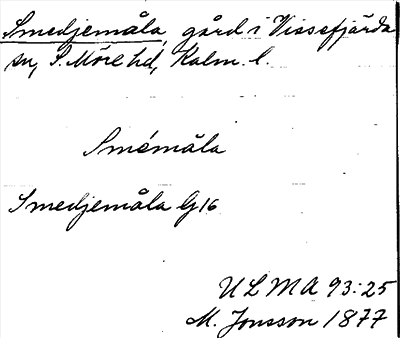 Smedjemåla, gård i Vissefjärda
sn, S. Möre hd, Kalm. l.
Smémåla
Smedjemåla G16
ULMA 93:25
M. Jonsson 1877